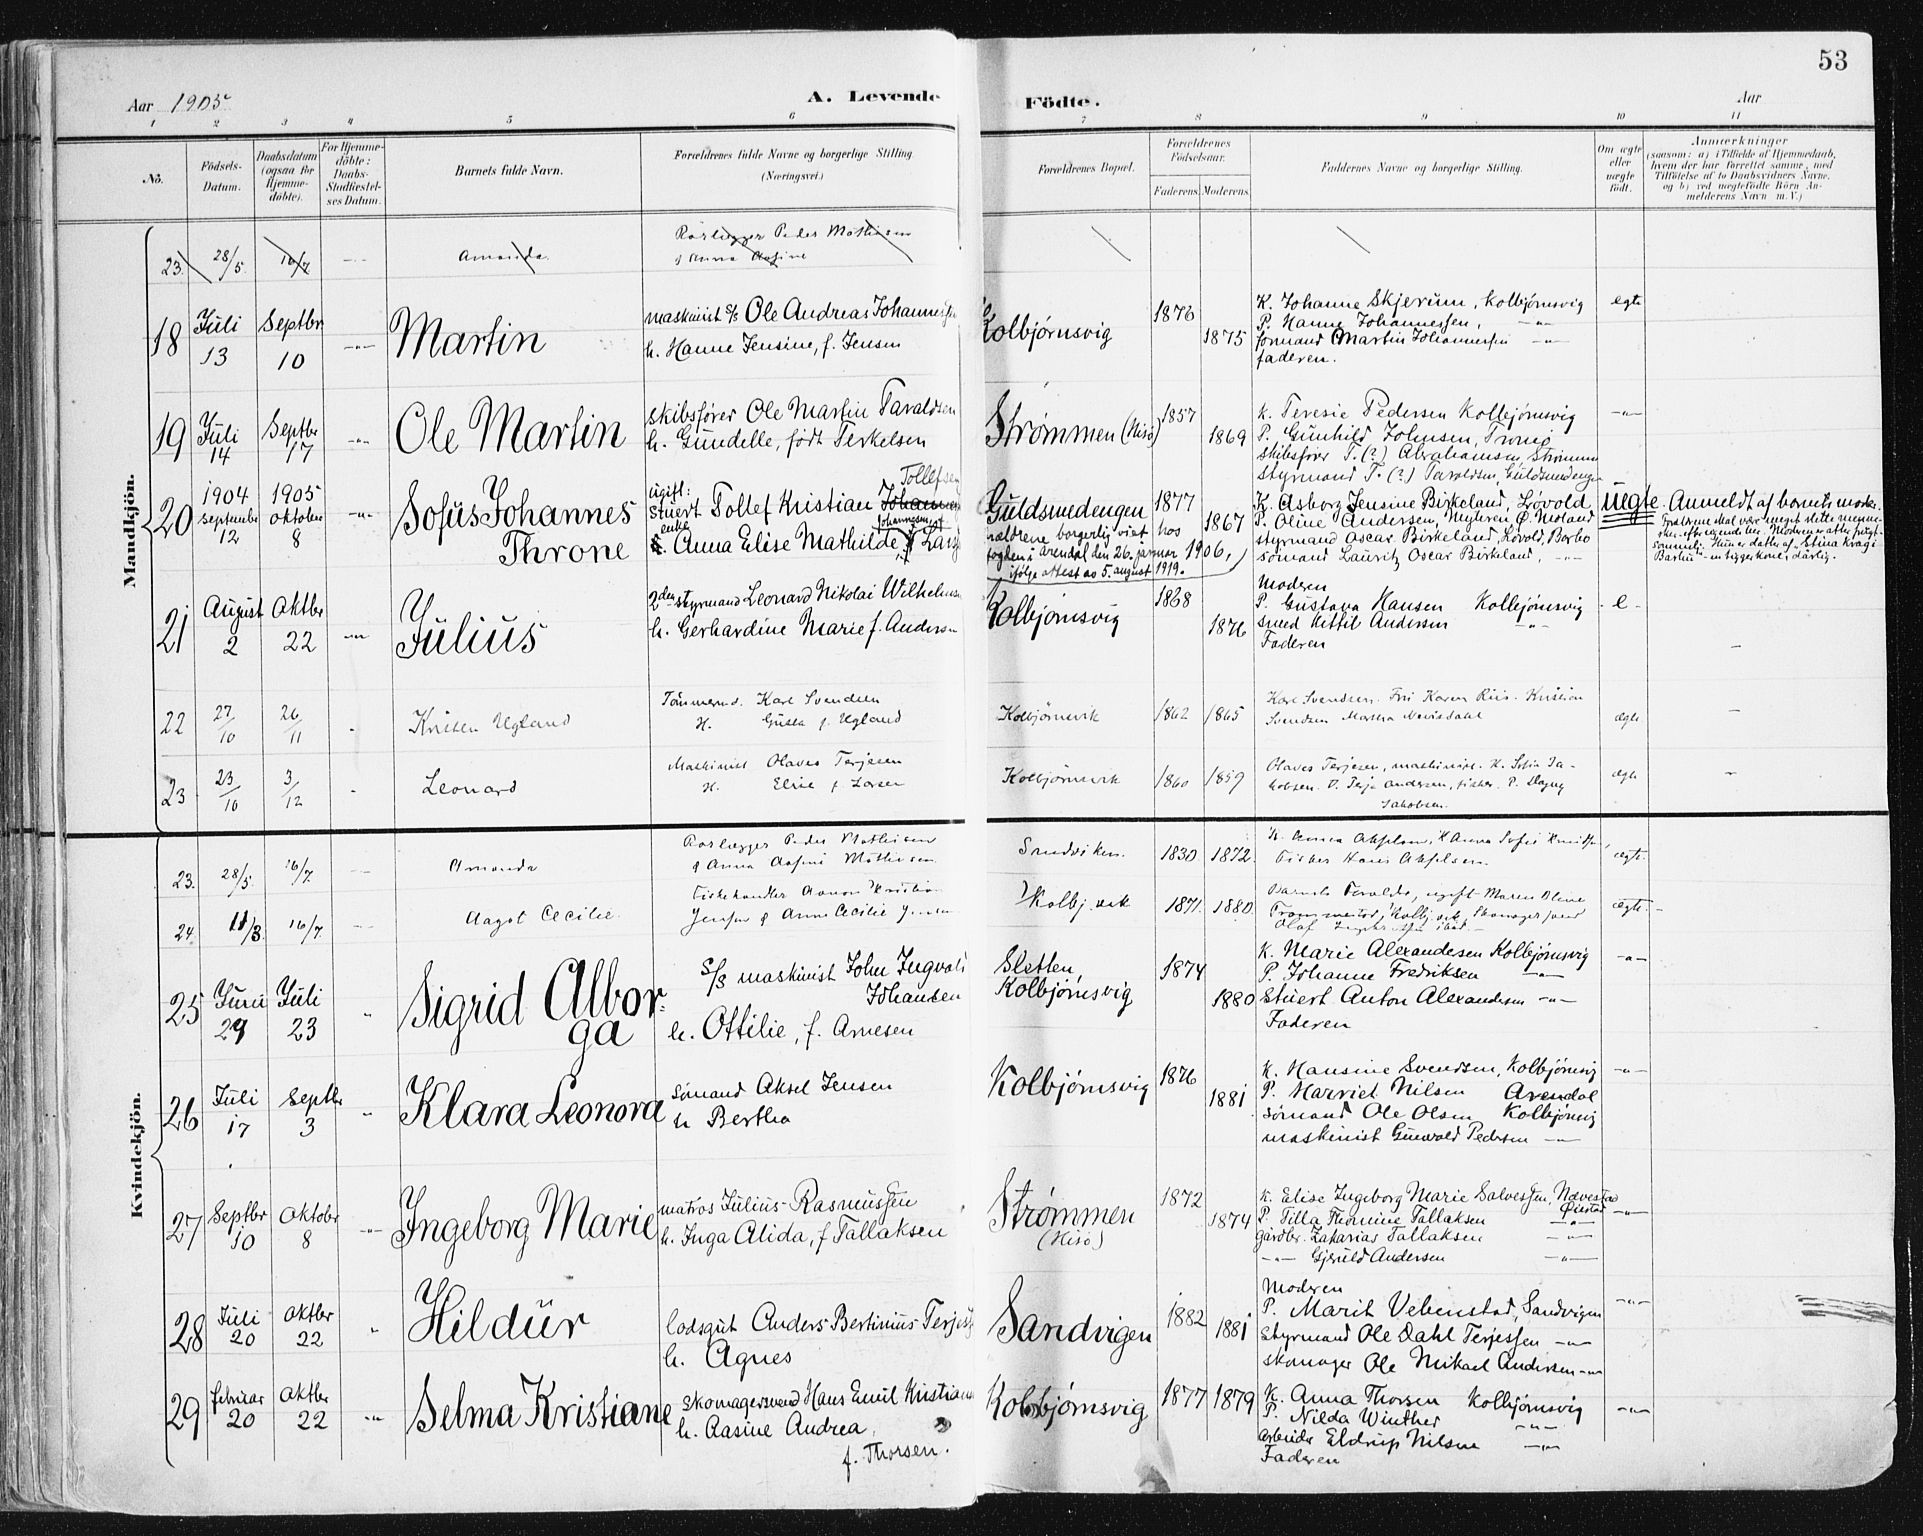 53
Aar 1905
A. Levende
Födte.
Aar
1 2 3 4 5 6 7 8 9 10 11
No.
Födsels-
Datum.
Daabsdatum
(ogsaa for
Hjemme-
döbte).
For Hjemme-
döbte:
Daabs-
Stadfæstel-
ses Datum.
Barnets fulde Navn.
Forældrenes fulde Navne og borgerlige Stilling
(Næringsvei.)
Forældrenes Bopæl.
Forældrenes
Födselsaar.
Faderens. Moderens.
Faddernes Navne og borgerlige Stilling.
Om ægte
eller
uægte
født.
Anmærkninger
(saasom: a) i Tilfælde af Hjemmedaab,
hvem der har forrettet samme, med
Tilföielse af to Daabsvidners Navne,
og b) ved uægtefödte Börn An-
melderens Navn m. V.)
Mandkjön.
23. 28/5. 16/7 Amanda.
Rørlegger Peder Mathisen
& Anna Aasine
18 Juli 13 Septbr 10 -"- Martin
maskinist S/S Ole Andreas Johannessen
h. Hanne Jensine, f. Jensen
Kolbjørnsvig 1876 1875
K. Johanne Skjerum, Kolbjørnsvig
P. Hanne Johannessen, -"-
formand Martin Johannessen -"-
faderen.
egte
19 Juli 14 Septbr 17 -"- Ole Martin
skibsfører Ole Martin Taraldsen
h. Gundelle, født Terkelsen
Strømmen (Hisö) 1857 1869
K. Teresie Pedersen Kolbjørnsvig
P. Gunhild Johnsen, Tromö
skibsfører T. (?) Abrahamsen, Strømmen
styrmand T. (?) Taraldsen, Guldsmedengen
-"-
20 1904 september 12 1905 oktober 8 -"- Sofus Johannes
Throne
ugift: Tollefsen
stuert Tollef Kristian
enke Johannesen
Anna Elise Mathilde, f.
Guldsmedengen 1877 1867
forældrene borgerlig viet hos
fogden i Arendal den 26. januar 1906,
ifølge attest av 5. august 1919.
K. Asborg Jensine Birkeland, Løvold
P. Oline Andersen, Myhren Ö. Moland
styrmand Oscar Birkeland, Løvold, Barbo
sömand Lauritz Oscar Birkeland, -"-
uegte
Anmeldt af barnets moder.
Forældrene skal være meget slette menne-
21 August 2 Oktbr 22 -"- Julius
2den styrmand Leonard Nikolai Wilhelmsen
h. Gerhardine Marie f. Andersen
Kolbjørnsvig 1868 1876
Moderen
P. Gustava Hansen Kolbjørnsvig
smed Kittil Andersen -"-
Faderen
- e -
-
22 27/10 26/11 Kristen Ugland
Tömmermd. Karl Svendsen
H. Gusta f. Ugland
Kolbjørnsvik 1862 1865
Karl Svendsen. Fru Karen Riis. Kristian
Svendsen Martha Nævisdahl
ægte
-
23 23/10 3/12 Leonard
Maskinist Olaves Terjesen
H. Elise f. Larsen
Kolbjørnsvik 1860 1859
Olaves Terjesen, maskinist. H. Sofie Ja-
kobsen. V. Terje Andersen, fisker. P. Dagny
Jakobsen.
ægte
-
Kvindekjön.
23. 28/5. 16/7. Amanda
Rørlægger Peder Mathisen
& Anna Aasine Mathisen
Sandviken. 1830 1872.
K. Anna Akselsen, K Anna Sofie Knudsen,
Fisker Hans Akselsen.
ægte.
24. 11/3. 16/7. Aagot Cecilie.
Fiskehandler Aanon Kristian
Jensen & Anne Cecilie Jensen
Kolbj.vik 1871. 1880
Barnets Forældre, ugift Maren Oline
ægte.
25 Juni 29 Juli 23 Sigrid Albor-
ga
S/S maskinist John Ingvald
Johansen
h. Ottilie, f. Arnesen
Sletten,
Kolbjørnsvig 1874 1880
K. Marie Alexandersen Kolbjørnsvig
P. Johanne Fredriksen -"-
Stuert Anton Alexandersen -"-
Faderen
-"-
26 Juli 17 Septbr 3 Klara Leonora
Sömand Aksel Jensen
h Bertha
Kolbjørnsvig 1876 1881
K. Hansine Svendsen, Kolbjørnsvig
P. Harriet Nilsen Arendal
sömand Ole Olsen Kolbjørnsvig
maskinist Gunvald Pedersen -"-
-"-
27 Septbr 10 Oktober 8 -"- Ingeborg Marie
matros Julius Rasmussen
h. Inga Alida, f Tallaksen
Strømmen
(Hisö) 1872 1874
K. Elise Ingeborg Marie Salvessen, Nævestad
Øiestad
P. Tilla Thomine Tallaksen -"-
gårdbr. Zakarias Tallaksen -"-
-"- Gjeruld Andersen -"-
-"-
28 Juli 20 Oktbr 22 Hildur
lodsgut Anders Bertinius Terjesen
h. Agnes
Sandvigen 1882 1881
Moderen
P. Marit Vebenstad, Sandvigen
Styrmand Ole Dahl Terjessen -"-
skomager Ole Mikael Andersen -"-
-"-
29 februar 20 Oktbr 22 -"- Selma Kristiane
skomagersvend Hans Emil Kristiansen
h. Aasine Andrea,
f. Thorsen.
Kolbjørnsvig 1877 1879
K. Anna Thorsen Kolbjørnsvig
P. Nilda Winther -"-
arbeider Eldrup Nilsen -"-
Faderen
-"-